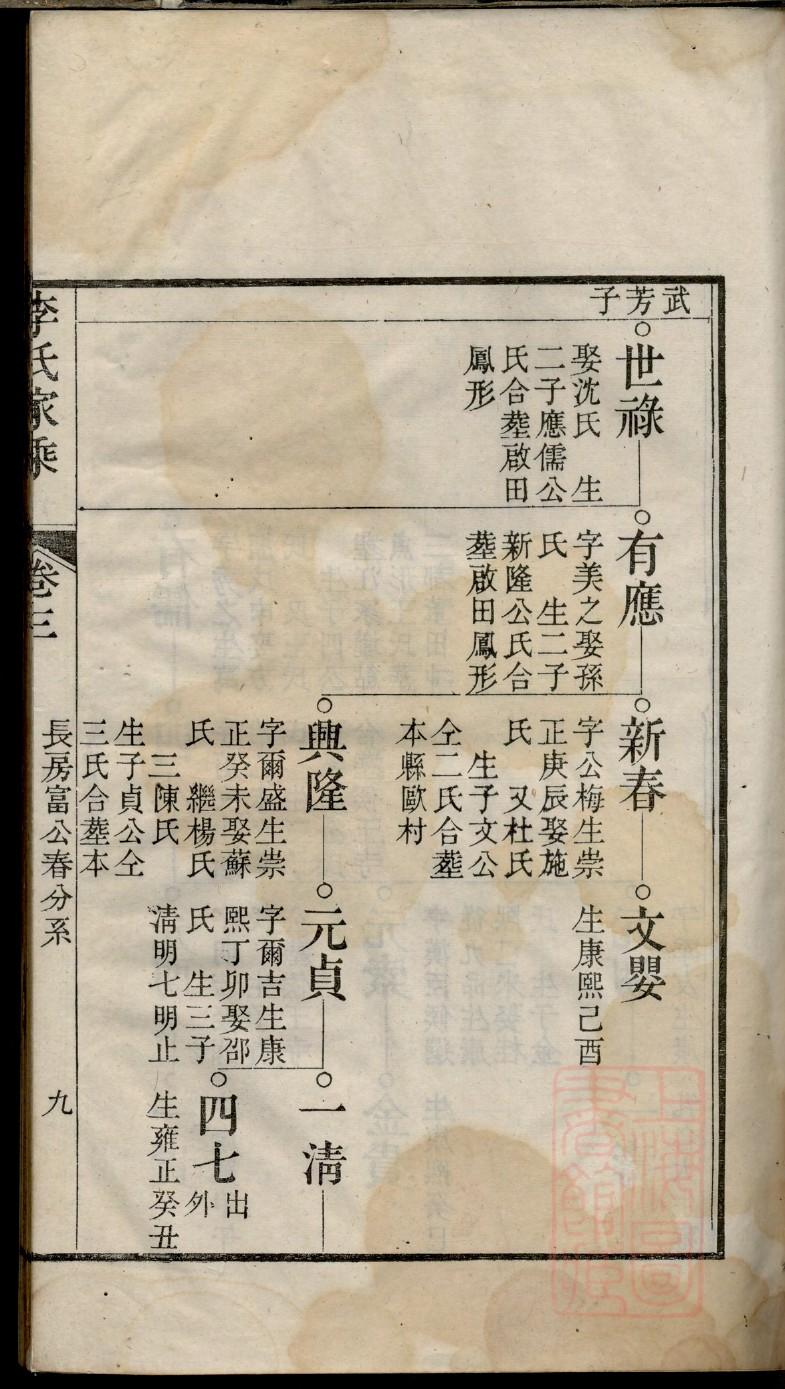 武芳子
世祿
娶沈氏　生
二子應儒公
氏合塟啟田
鳳形
有應
字美之娶孫
氏　生二子
新隆公氏合
塟啟田鳳形
新春
字公梅生崇
正庚辰娶施
氏　又杜氏
生子文公
仝二氏合塟
本縣歐村
文嬰
生康熙己酉
興隆
字爾盛生崇
正癸未娶蘇
氏　繼楊氏
三陳氏
生子貞公仝
三氏合塟本
元貞
字爾吉生康
熙丁卯娶邵
氏　生三子
淸明七明止
一淸
四七
出
外
生雍正癸丑
李氏家乘
卷三
長房富公春分系
九